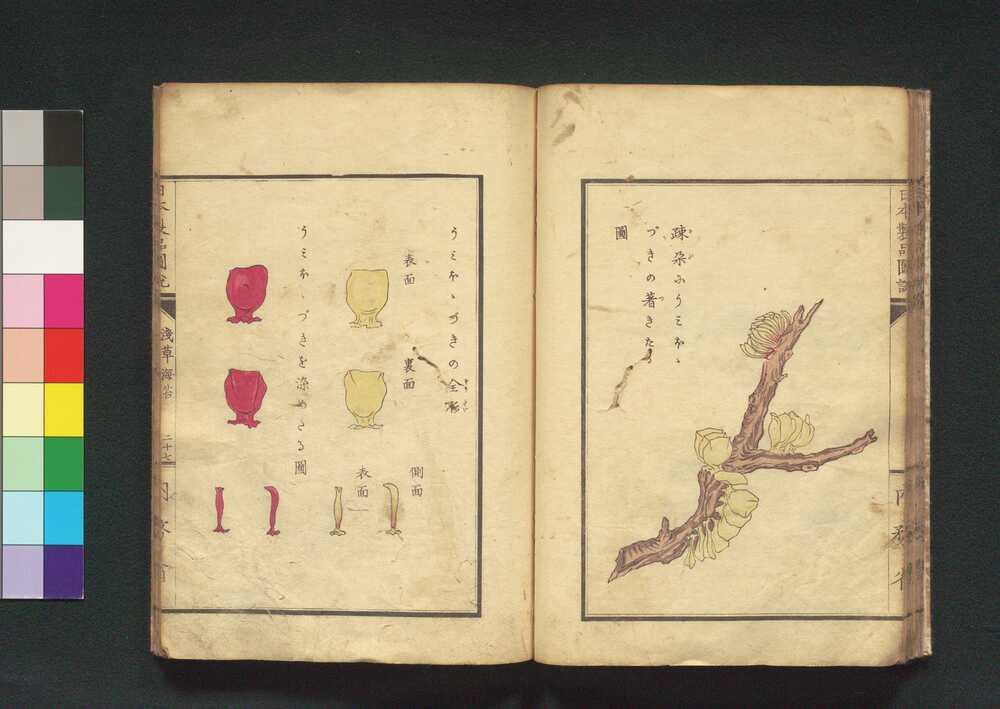 日本製品圖説
内務省
疎朶ふうミほゝ
づきの著きたる
圖
うミほゝづきの全形
表面
裏面
側面
表面
うミほゝづきを染めたる圖
日本製品圖説
淺草海苔
二十七
内務省